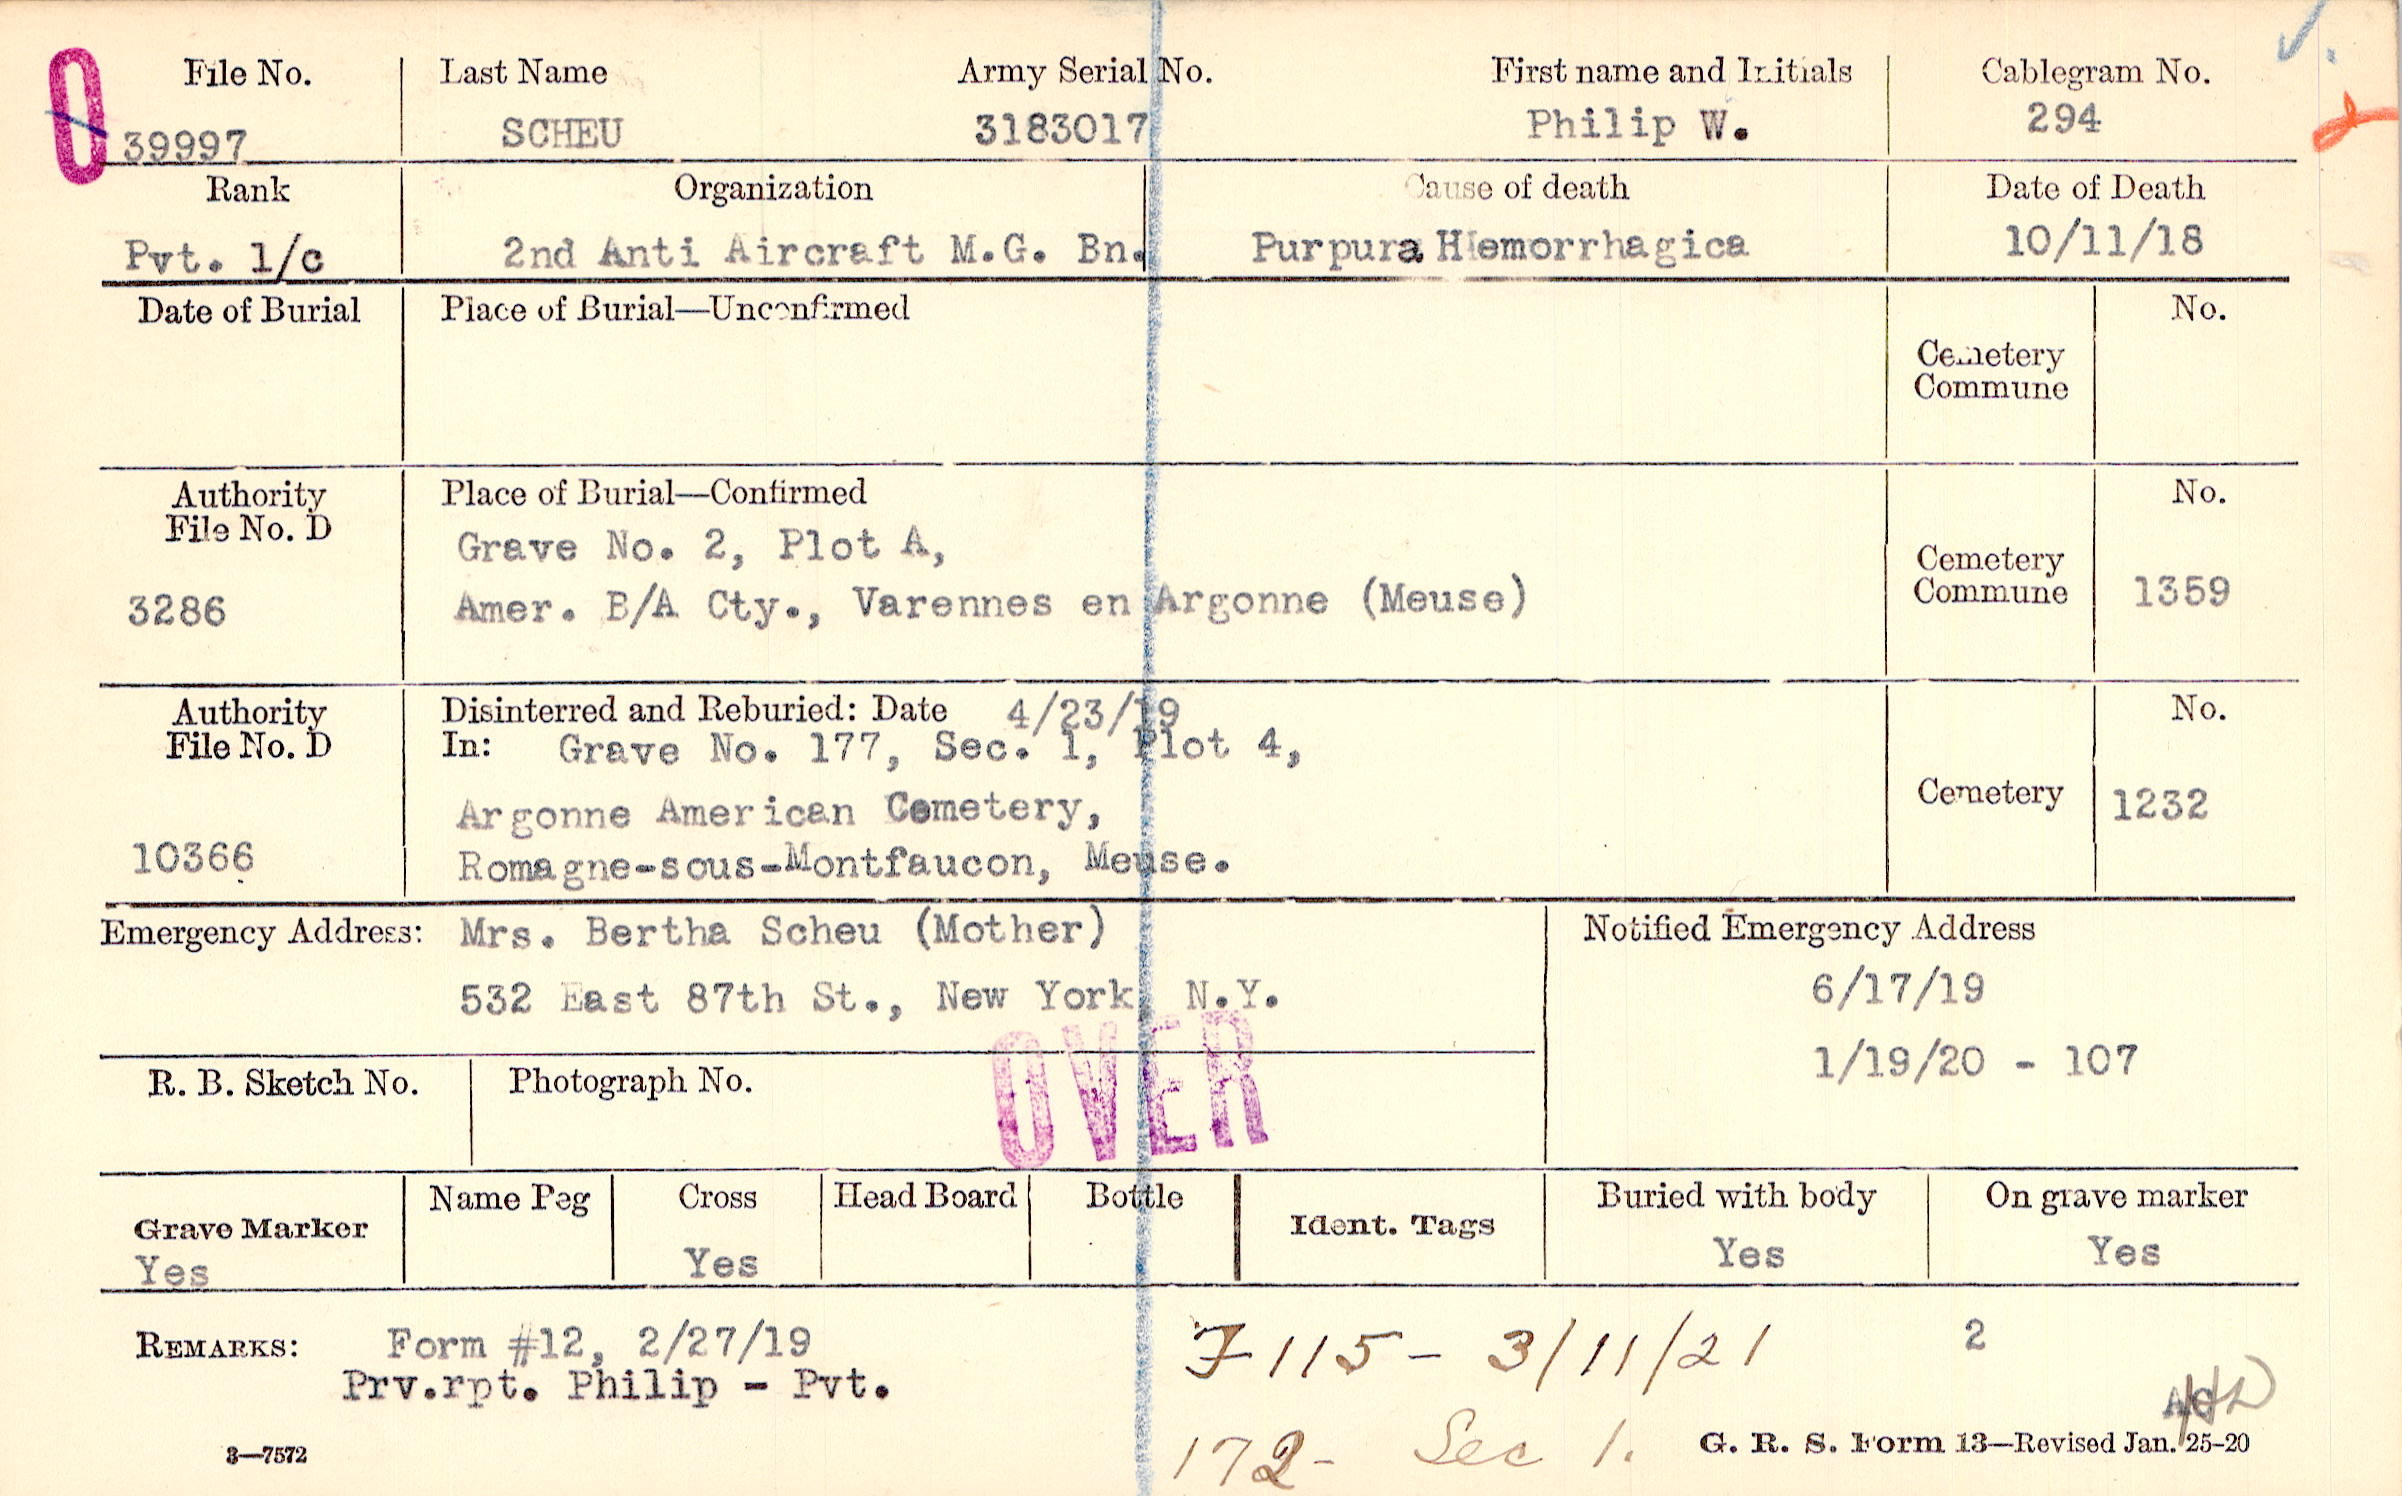 File No. Last Name Army Serial No. First name and Initials Cablegram No.
39997 SCHEU 3183017 Philip W. 294
Rank Organization Cause of death Date of Death
Pvt. 1/c 2nd Anti Aircraft M.G. Bn. Purpura Hemorrhagica 10/11/18
Date of Burial Place of Burial—Unconfirmed No.
Cemetery
Commune
Authority Place of Burial—Confirmed No.
File No. D
Grave No. 2, Plot A,
Cemetery
3286 Amer. B/A Cty., Varennes en Argonne (Meuse) Commune 1359
Authority Disinterred and Reburied: Date 4/23/19 No.
File No. D In: Grave No. 177, Sec. 1, Plot 4,
Argonne American Cemetery, Cemetery 1232
10366 Romagne-sous-Montfaucon, Meuse.
Emergency Address: Mrs. Bertha Scheu (Mother) Notified Emergency Address
532 East 87th St., New York, N.Y. 6/17/19
OVER
1/19/20 - 107
R. B. Sketch No. Photograph No.
Name Peg Cross Head Board Bottle Buried with body On grave marker
Grave Marker Ident. Tags
Yes Yes Yes Yes
REMARKS: Form #12, 2/27/19 F 115 - 3/11/21 2
Prv.rpt. Philip - Pvt.
172 - Sec 1. G. R. S. Form 13—Revised Jan. 25-20
3—7572